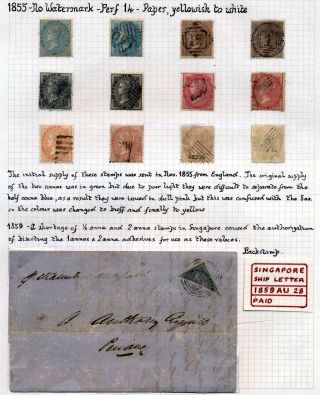 1855 - No Watermark - Perf 14 - Paper, yellowish to white
The initial supply of these stamps was sent in Nov. 1855 from England. The original supply
of the two annas was in green but due to poor light they were difficult to separate from the
half anna blue, as a result they were issued in dull pink, but this was confused with the 8as.
in the colour was changed to buff and finally to yellow
1859 - A shortage of ½ anna and 2 anna stamps in Singapore caused the authorization
of bisecting the 1 annas & 2 anna adhesives for use as these values.
Backstamp.
SINGAPORE
SHIP LETTER
1859 AU 28
PAID
Penang